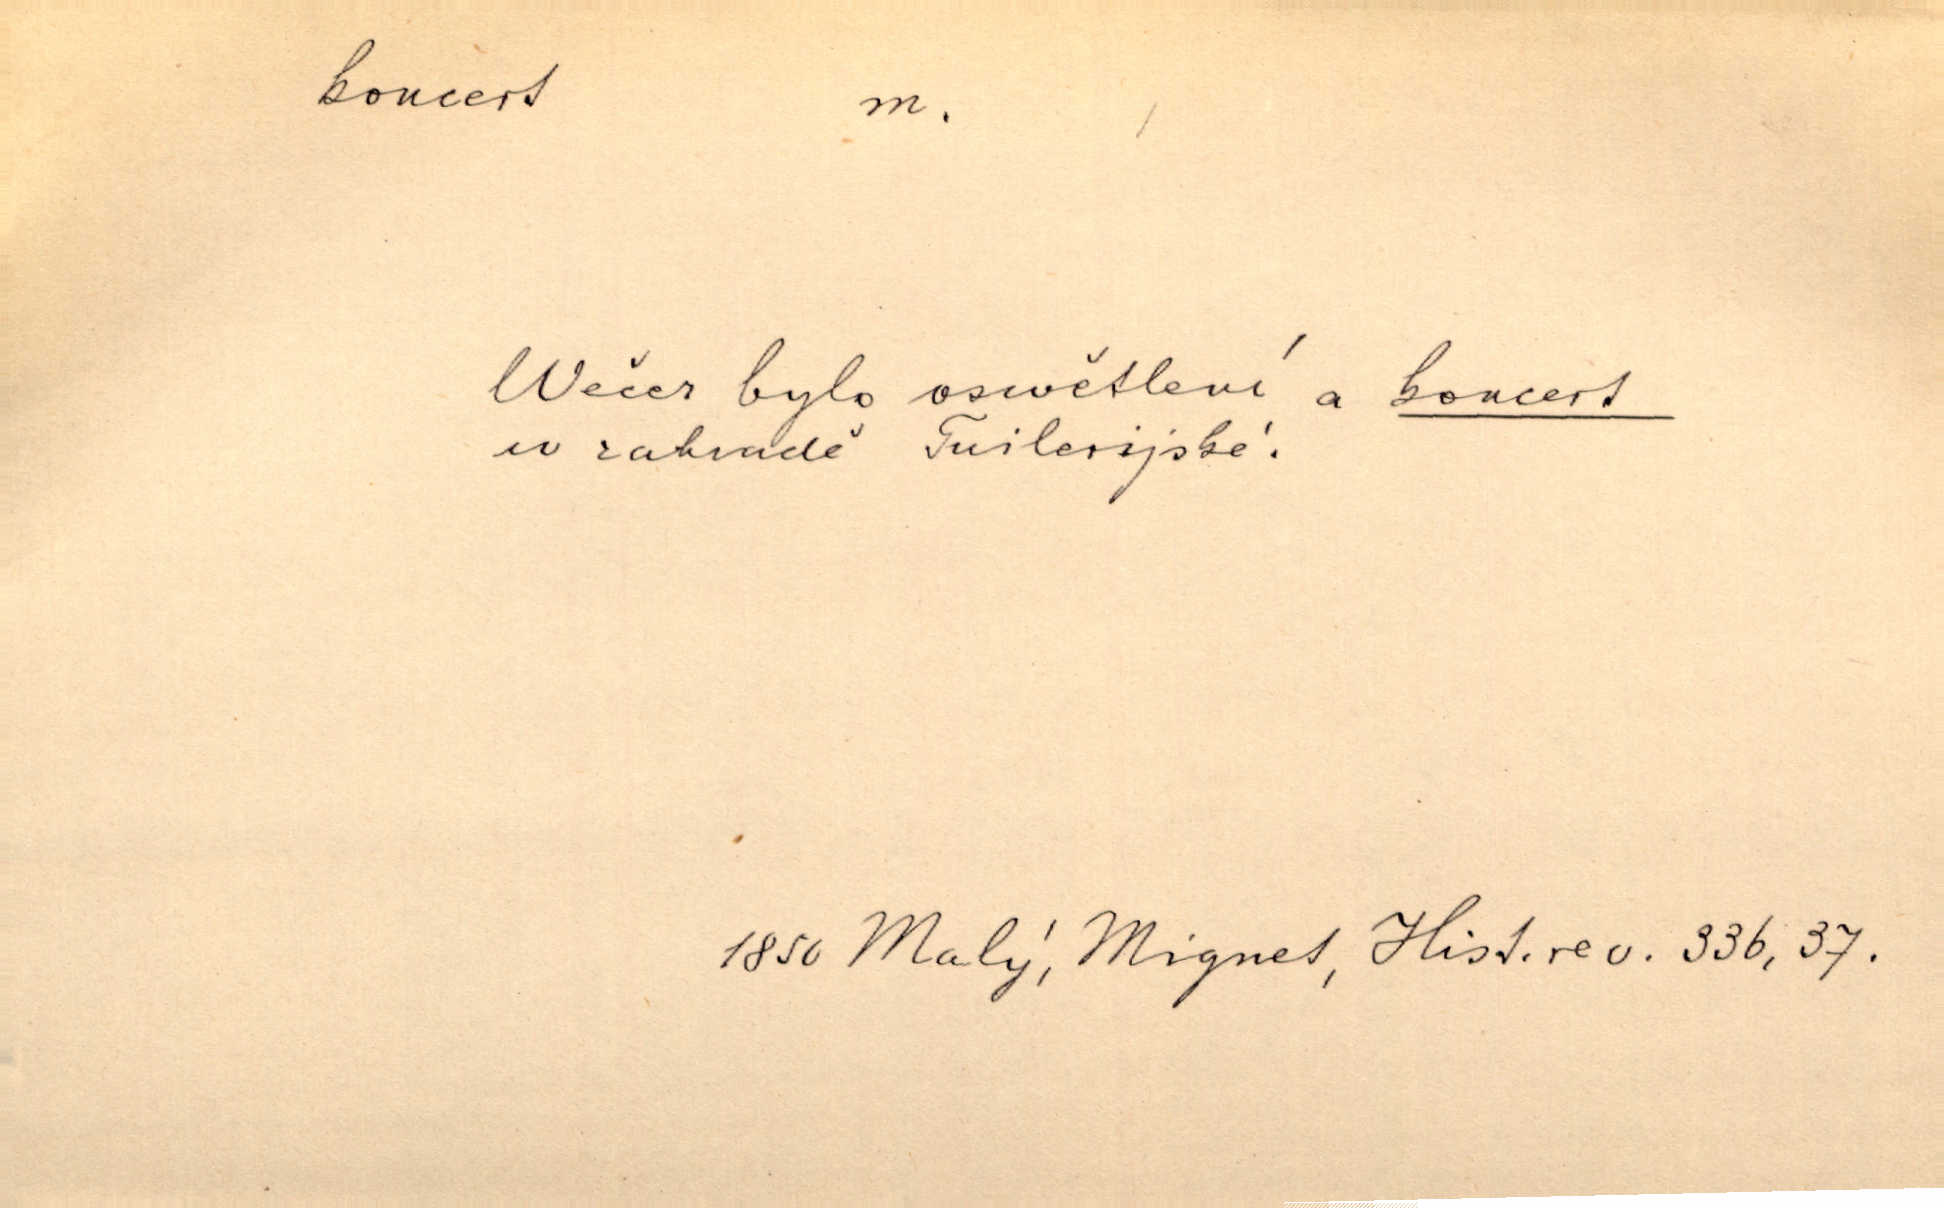 koncert m.
Wečer bylo oswětlení a koncert
w zahradě Tuilerijské.
1850 Malý, Mignet, Hist. rev. 336, 37.